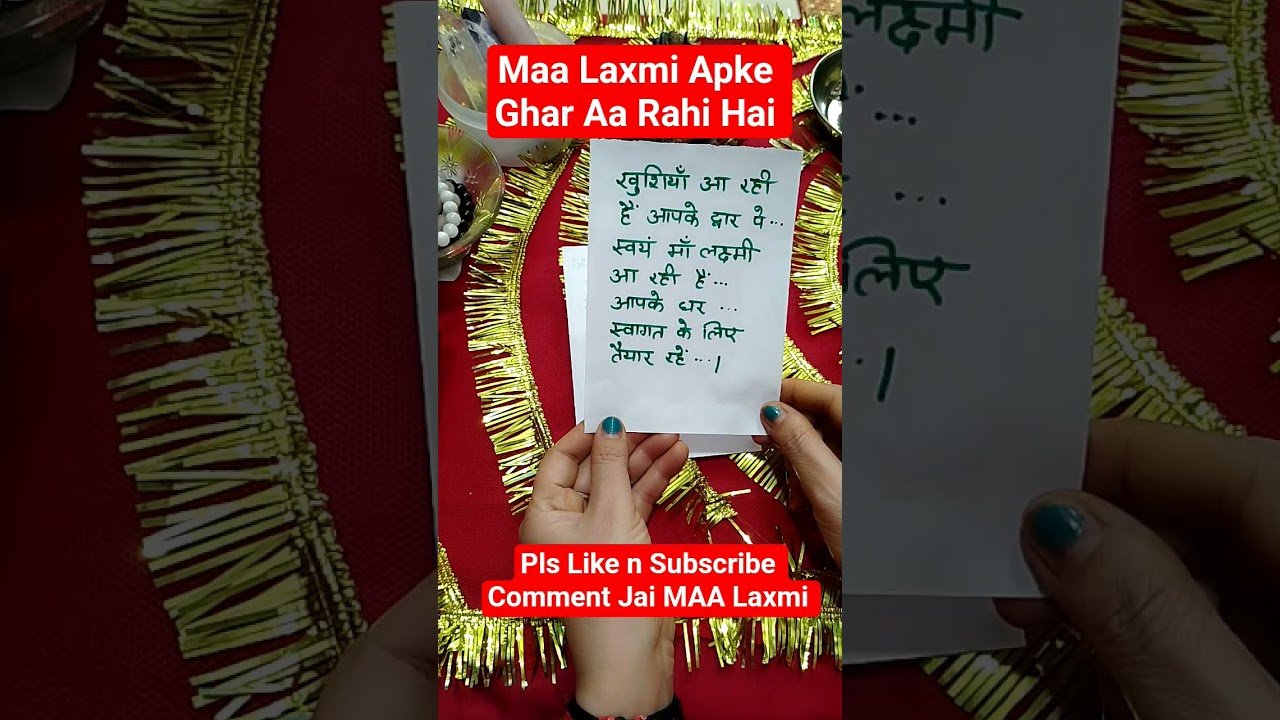 Maa Laxmi Apke
Ghar Aa Rahi Hai
खुशियाँ आ रही
हैं आपके द्वार पे...
स्वयं माँ लक्ष्मी
आ रही हैं...
आपके घर ...
स्वागत के लिए
तैयार रहें...।
Pls Like n Subscribe
Comment Jai MAA Laxmi
लक्ष्मी
...
...
लिए
.।